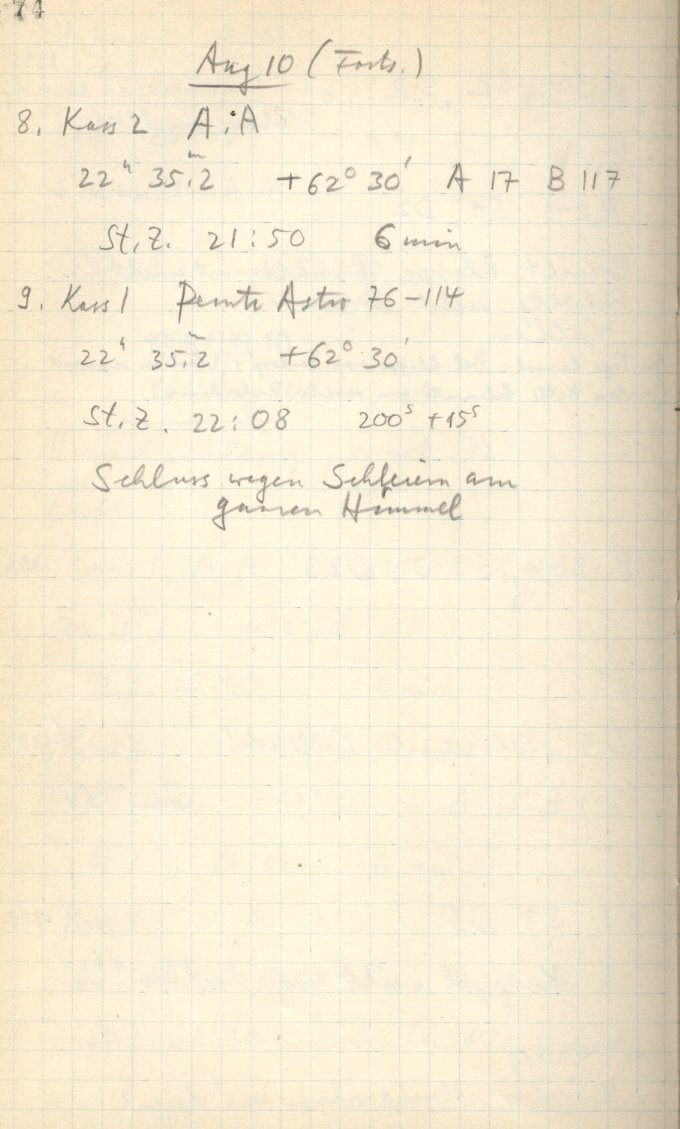 74
Aug 10 (Forts.)
8. Kass 2 A:A
22ʰ 35ᵐ.2 +62° 30' A 17 B 117
St.Z. 21:50 6 min
9. Kass 1 Perutz Astro 76-114
22ʰ 35ᵐ.2 +62° 30'
St.Z. 22:08 200ˢ +15ˢ
Schluss wegen Schleiern am
ganzen Himmel